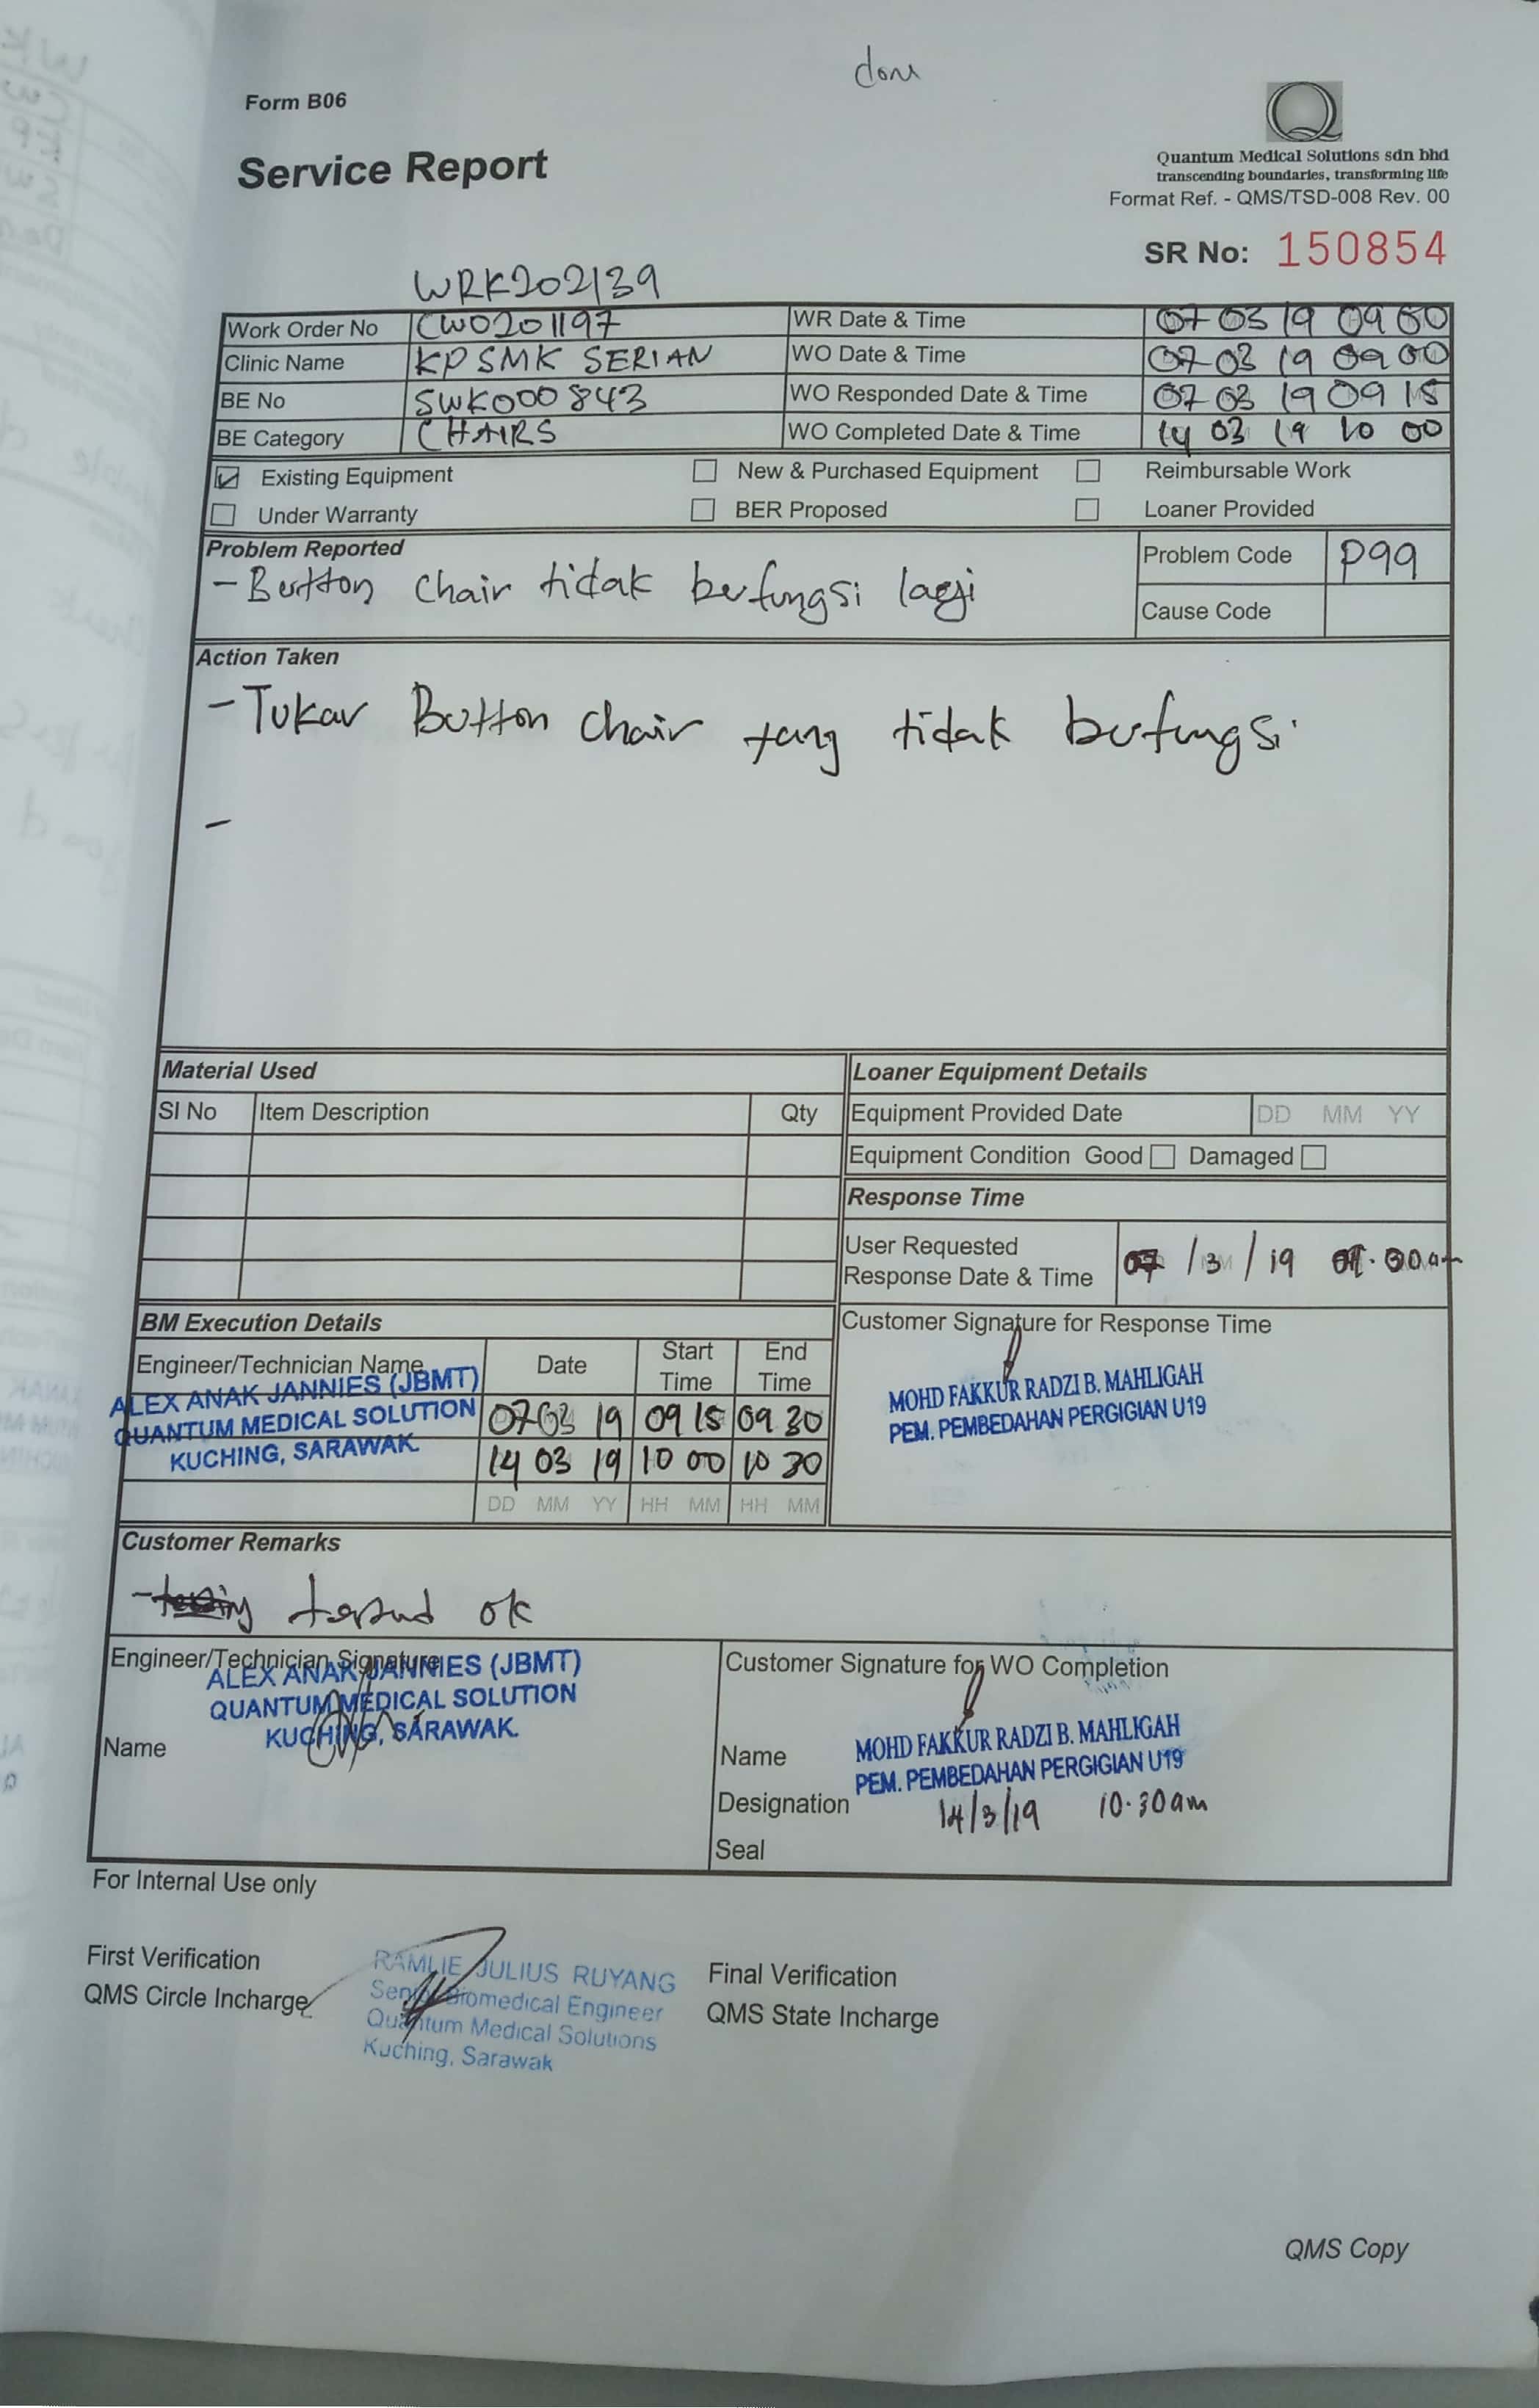 done
Form B06
Service Report
Quantum Medical Solutions sdn bhd
transcending boundaries, transforming life
Format Ref. - QMS/TSD-008 Rev. 00
SR No: 150854
WRK202139
Work Order No CWO201197 WR Date & Time 07 03 19 09 00
Clinic Name KPSMK SERIAN WO Date & Time 07 03 19 09 00
BE No SWK000843 WO Responded Date & Time 07 03 19 09 15
BE Category CHAIRS WO Completed Date & Time 14 03 19 10 00
Existing Equipment New & Purchased Equipment Reimbursable Work
Under Warranty BER Proposed Loaner Provided
Problem Reported Problem Code P99
- Button chair tidak berfungsi lagi
Cause Code
Action Taken
- Tukar Button chair yang tidak berfungsi
-
Material Used Loaner Equipment Details
SI No Item Description Qty Equipment Provided Date DD MM YY
Equipment Condition Good Damaged
Response Time
User Requested
Response Date & Time 07/3/19
BM Execution Details Customer Signature for Response Time
Engineer/Technician Name Date Start Time End Time
ALEX ANAK JANNIES (JBMT)
QUANTUM MEDICAL SOLUTION
KUCHING, SARAWAK.
07 03 19 09 15 09 30
14 03 19 10 00 10 30
DD MM YY HH MM HH MM
MOHD FAKKUR RADZI B. MAHLIGAH
PEM. PEMBEDAHAN PERGIGIAN U19
Customer Remarks
- ok
Engineer/Technician Signature
ALEX ANAK JANNIES (JBMT)
QUANTUM MEDICAL SOLUTION
KUCHING, SARAWAK.
Name
Customer Signature for WO Completion
Name MOHD FAKKUR RADZI B. MAHLIGAH
PEM. PEMBEDAHAN PERGIGIAN U19
Designation 14/3/19 10.30am
Seal
For Internal Use only
First Verification
QMS Circle Incharge
RAMLIE JULIUS RUYANG
Senior Biomedical Engineer
Quantum Medical Solutions
Kuching, Sarawak
Final Verification
QMS State Incharge
QMS Copy